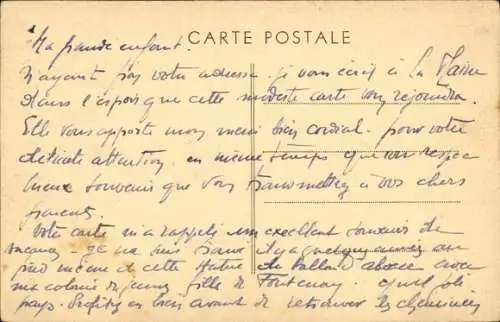 Ma grande enfant.
CARTE POSTALE
N'ayant pas votre adresse je vous écris à la Mairie
dans l'espoir que cette modeste carte vous rejoindra.
Elle vous apporte mon merci bien cordial. pour votre
délicate attention. en même temps que mon respec
tueux souvenir que vous transmettrez à vos chers
parents.
Votre carte m'a rappelé un excellent souvenir de
vacances - je me suis trouvé il y a quelques années au
pied même de cette statue du ballon d'alsace avec
ma colonie de jeunes filles de Fontenay. quel joli
pays. Profitez en bien avant de retrouver les